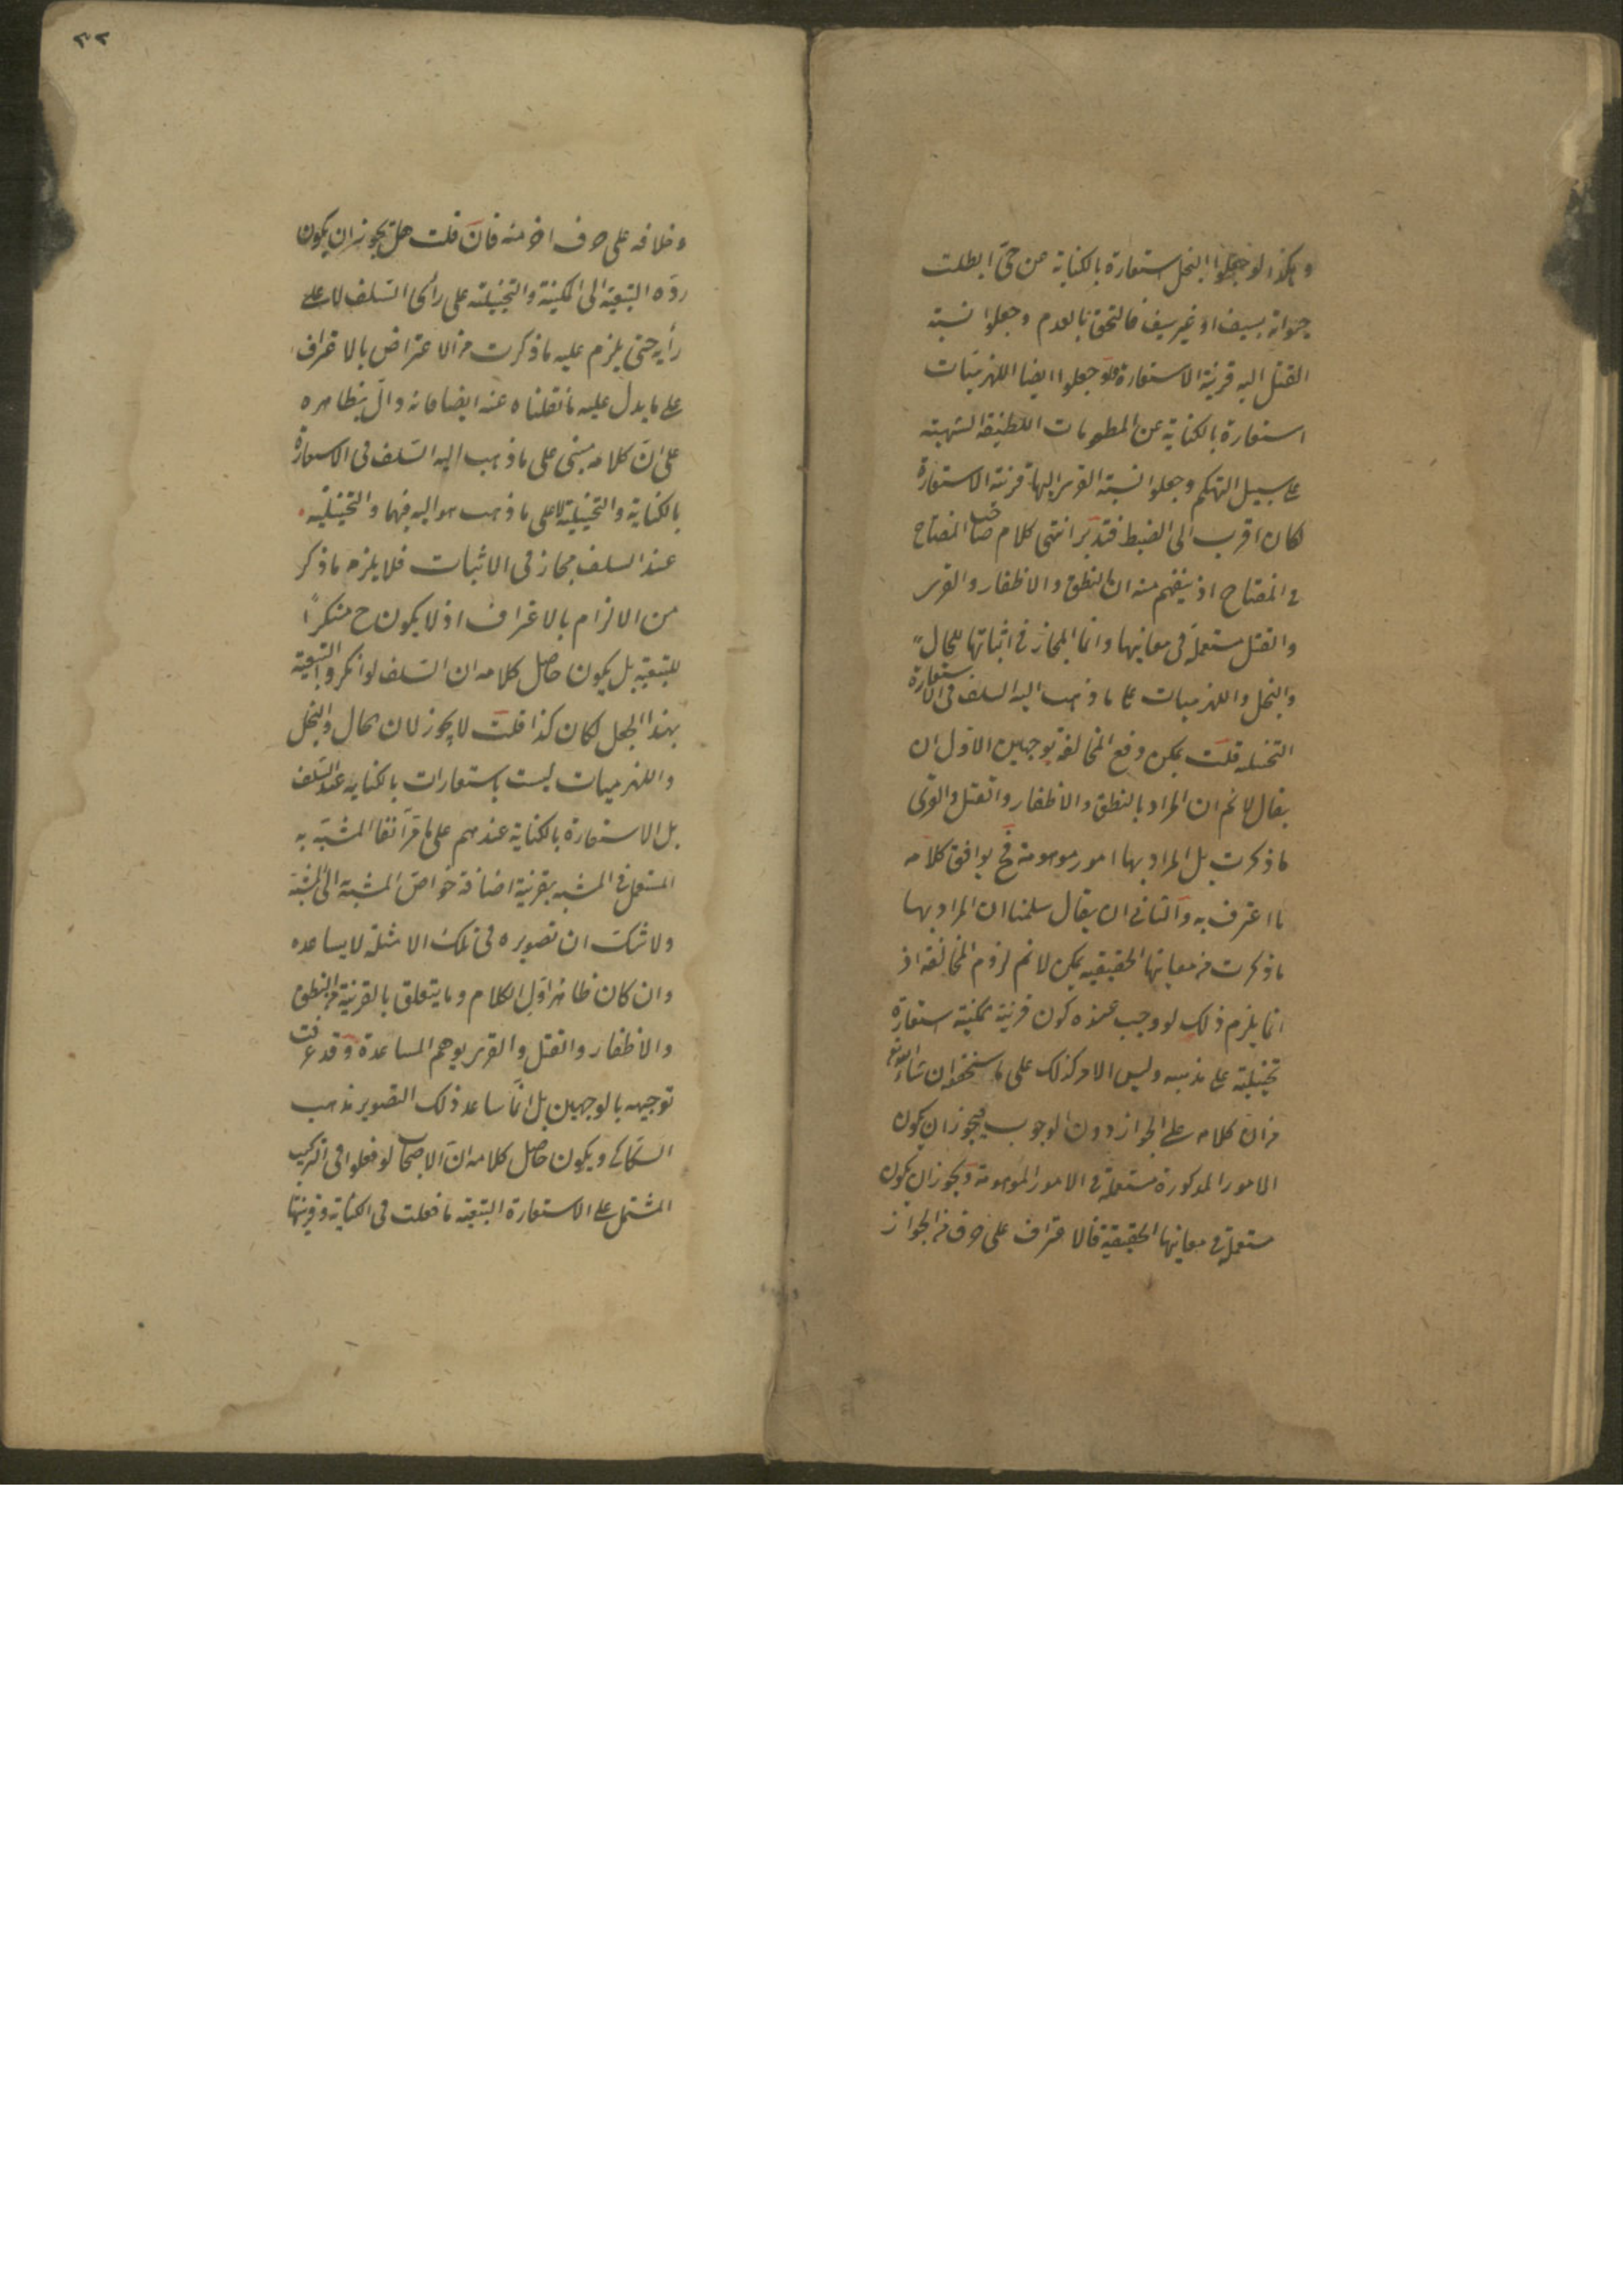 وهكذا لو جعلوا البخل استعارة بالكناية عن حي ابطلت
حيوته بسيف او غير سيف فالتحق بالعدم وجعلوا نسبة
القتل اليه قرينة الاستعارة ولو جعلوا ايضا اللهزميات
استعارة بالكناية عن المطعومات اللطيفة الشهية
على سبيل التهكم وجعلوا نسبة القرى اليها قرينة الاستعارة
لكان اقرب الى الضبط فتدبر انتهى كلام صاحب المفتاح
في المفتاح اذ يفهم منه ان النطق والاظفار والقرى
والقتل مستعملة في معانيها وانما المجاز في اثباتها للحال
والبخل واللهزميات على ما ذهب اليه السلف في الاستعارة
التخييلية قلت يمكن دفع المخالفة بوجهين الاول ان
يقال لا نم ان المراد بالنطق والاظفار والقتل والقرى
ما ذكرت بل المراد بها امور موهومة فح يوافق كلامه
ما اعترف به والثاني ان يقال سلمنا ان المراد بها
ما ذكرت من معانيها الحقيقية لكن لا نم لزوم المخالفة اذ
انما يلزم ذلك لو وجب عنده كون قرينة المكنية استعارة
تخييلية على مذهبه وليس الامر كذلك على ما ستحققه ان شاء الله تع
من ان كلامه على الجواز دون الوجوب فيجوز ان يكون
الامور المذكورة مستعملة في الامور الموهومة ويجوز ان يكون
مستعملة في معانيها الحقيقية فالاعتراف على حرف من الجواز
٣٢
وخلافه على حرف اخر منه فان قلت هل يجوز ان يكون
رده التبعية الى المكنية والتخييلية على رأى السلف لا على
رأيه حتى يلزم عليه ما ذكرت من الاعتراض بالاعتراف
على ما يدل عليه ما نقلناه عنه ايضا فانه دال بظاهره
على ان كلامه مبنى على ما ذهب اليه السلف في الاستعارة
بالكناية والتخييلية لا على ما ذهب هو اليه فيهما والتخييلية
عند السلف مجاز في الاثبات فلا يلزم ما ذكر
من الالزام بالاعتراف اذ لا يكون ح منكرا
للتبعية بل يكون حاصل كلامه ان السلف لو انكروا التبعية
بهذا الجعل لكان كذا قلت لا يجوز لان الحال والبخل
واللهزميات ليست باستعارات بالكناية عند السلف
بل الاستعارة بالكناية عندهم على ما مر آنفا المشبه به
المستعمل في المشبه بقرينة اضافة خواص المشبه الى المشبه
ولا شك ان تصويره في تلك الامثلة لا يساعده
وان كان ظاهر اول الكلام وما يتعلق بالقرينة من النطق
والاظفار والقتل والقرى يوهم المساعدة وقد عرفت
توجيهه بالوجهين بل انما ساعد ذلك التصوير مذهب
السكاكي ويكون حاصل كلامه ان الاصحاب لو فعلوا في التركيب
المشتمل على الاستعارة التبعية ما فعلت في الكناية وقرينتها